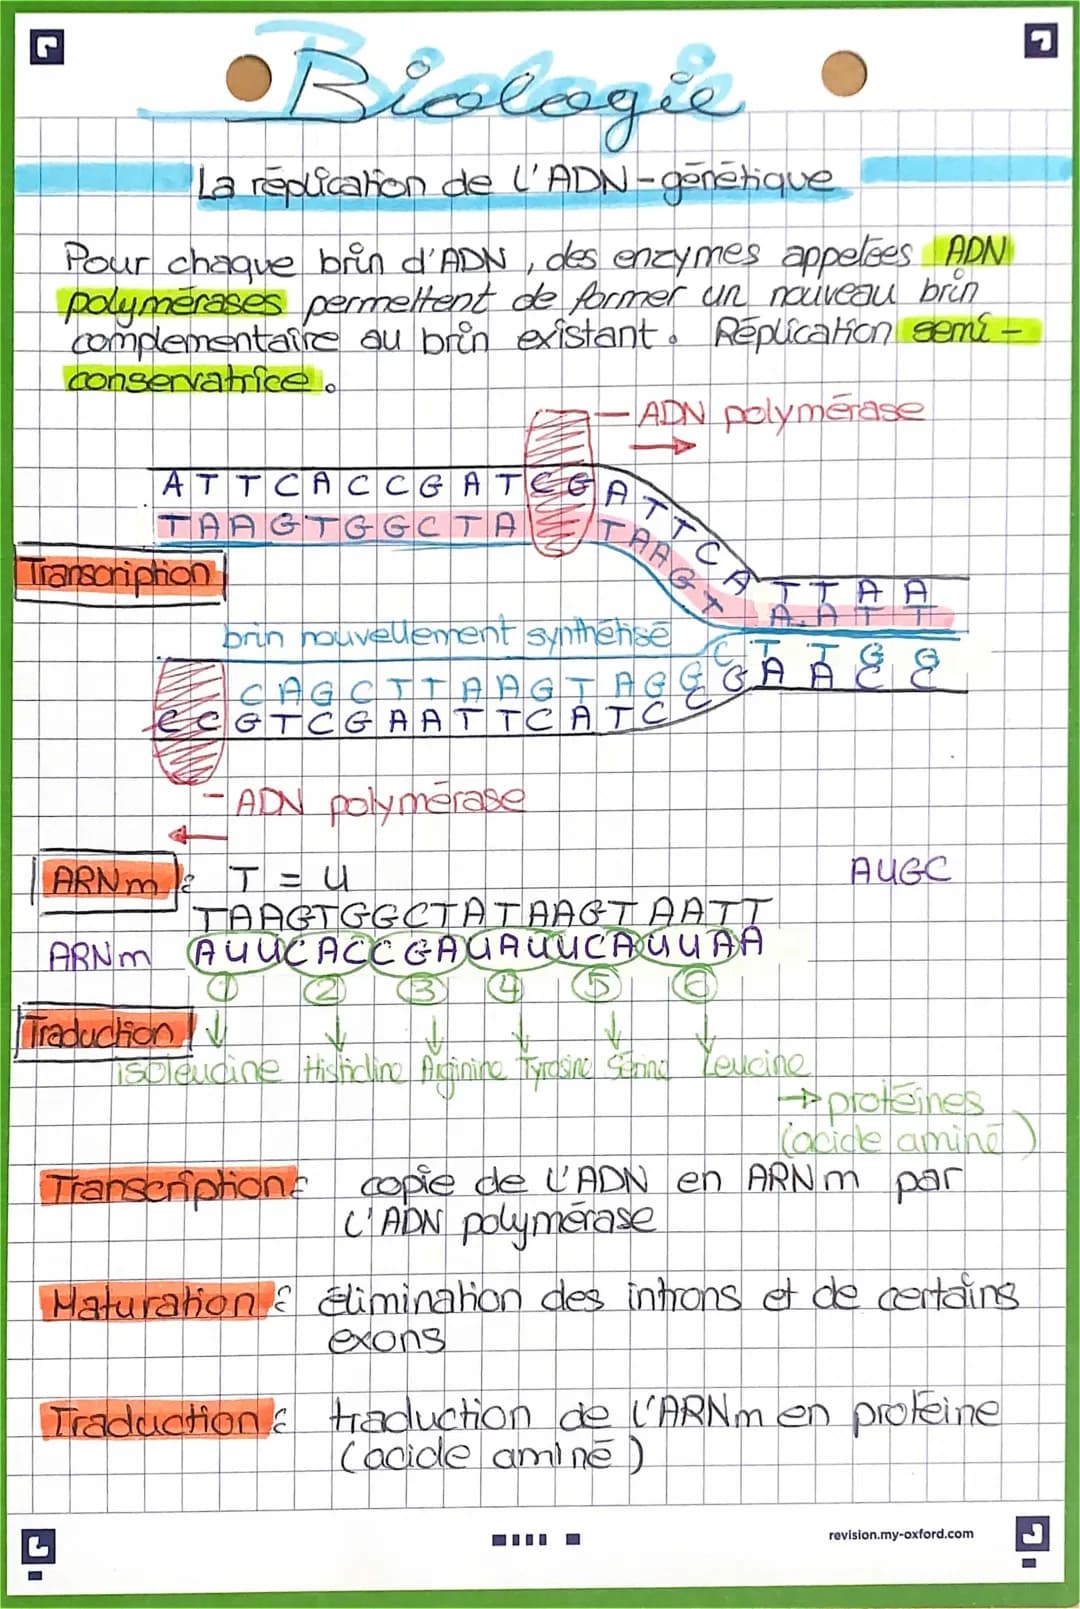 Biologie
La réplication de l'ADN-génétique
Pour chaque brin d'ADN, des enzymes appelées ADN
polymérases permettent de former un nouveau brin
complementaire au brin existant. Réplication semi-
conservatrice.
- ADN polymérase
ATTCACCGATCGATTCATTAA
TAAGTGGCTA TAAGTAATT
Transcription
brin nouvellement synthétisé
CAGCTTAAGTAGGCTTGG
CCGTCGAATTCATCCCGAACC
- ADN polymérase
ARNm : T = U
AUGC
TAAGTGGCTATAAGTAATT
ARNm AUUCACCGAUAUUCAUUAA
1 2 3 4 5 6
Traduction
isoleucine Histidine Arginine Tyrosine Sérine Leucine
→ protéines
(acide aminé)
Transcription : copie de l'ADN en ARNm par
l'ADN polymérase
Maturation : élimination des introns et de certains
exons
Traduction : traduction de l'ARNm en protéine
(acide aminé)
revision.my-oxford.com